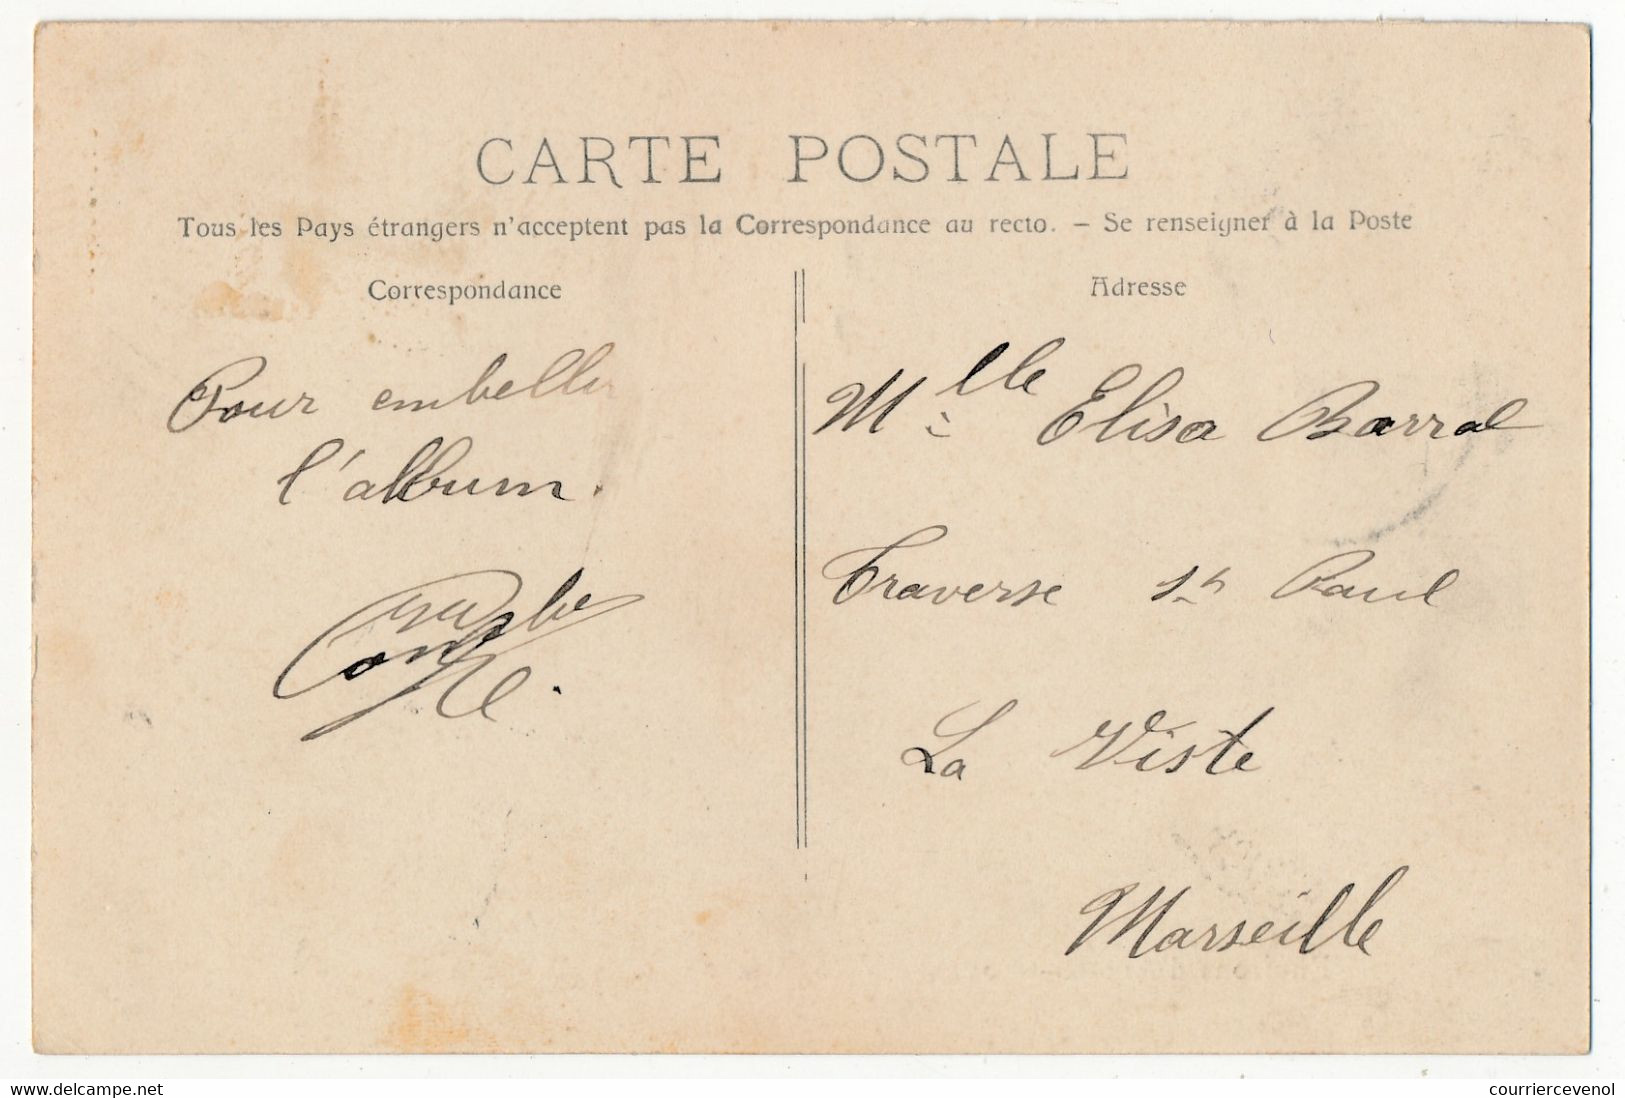 CARTE POSTALE
Tous les Pays étrangers n'acceptent pas la Correspondance au recto. – Se renseigner à la Poste
Correspondance
Pour embellir
l'album.
Adresse
Mlle Elisa Barral
Traverse St Paul
La Viste
Marseille
www.delcampe.net
courriercevenol